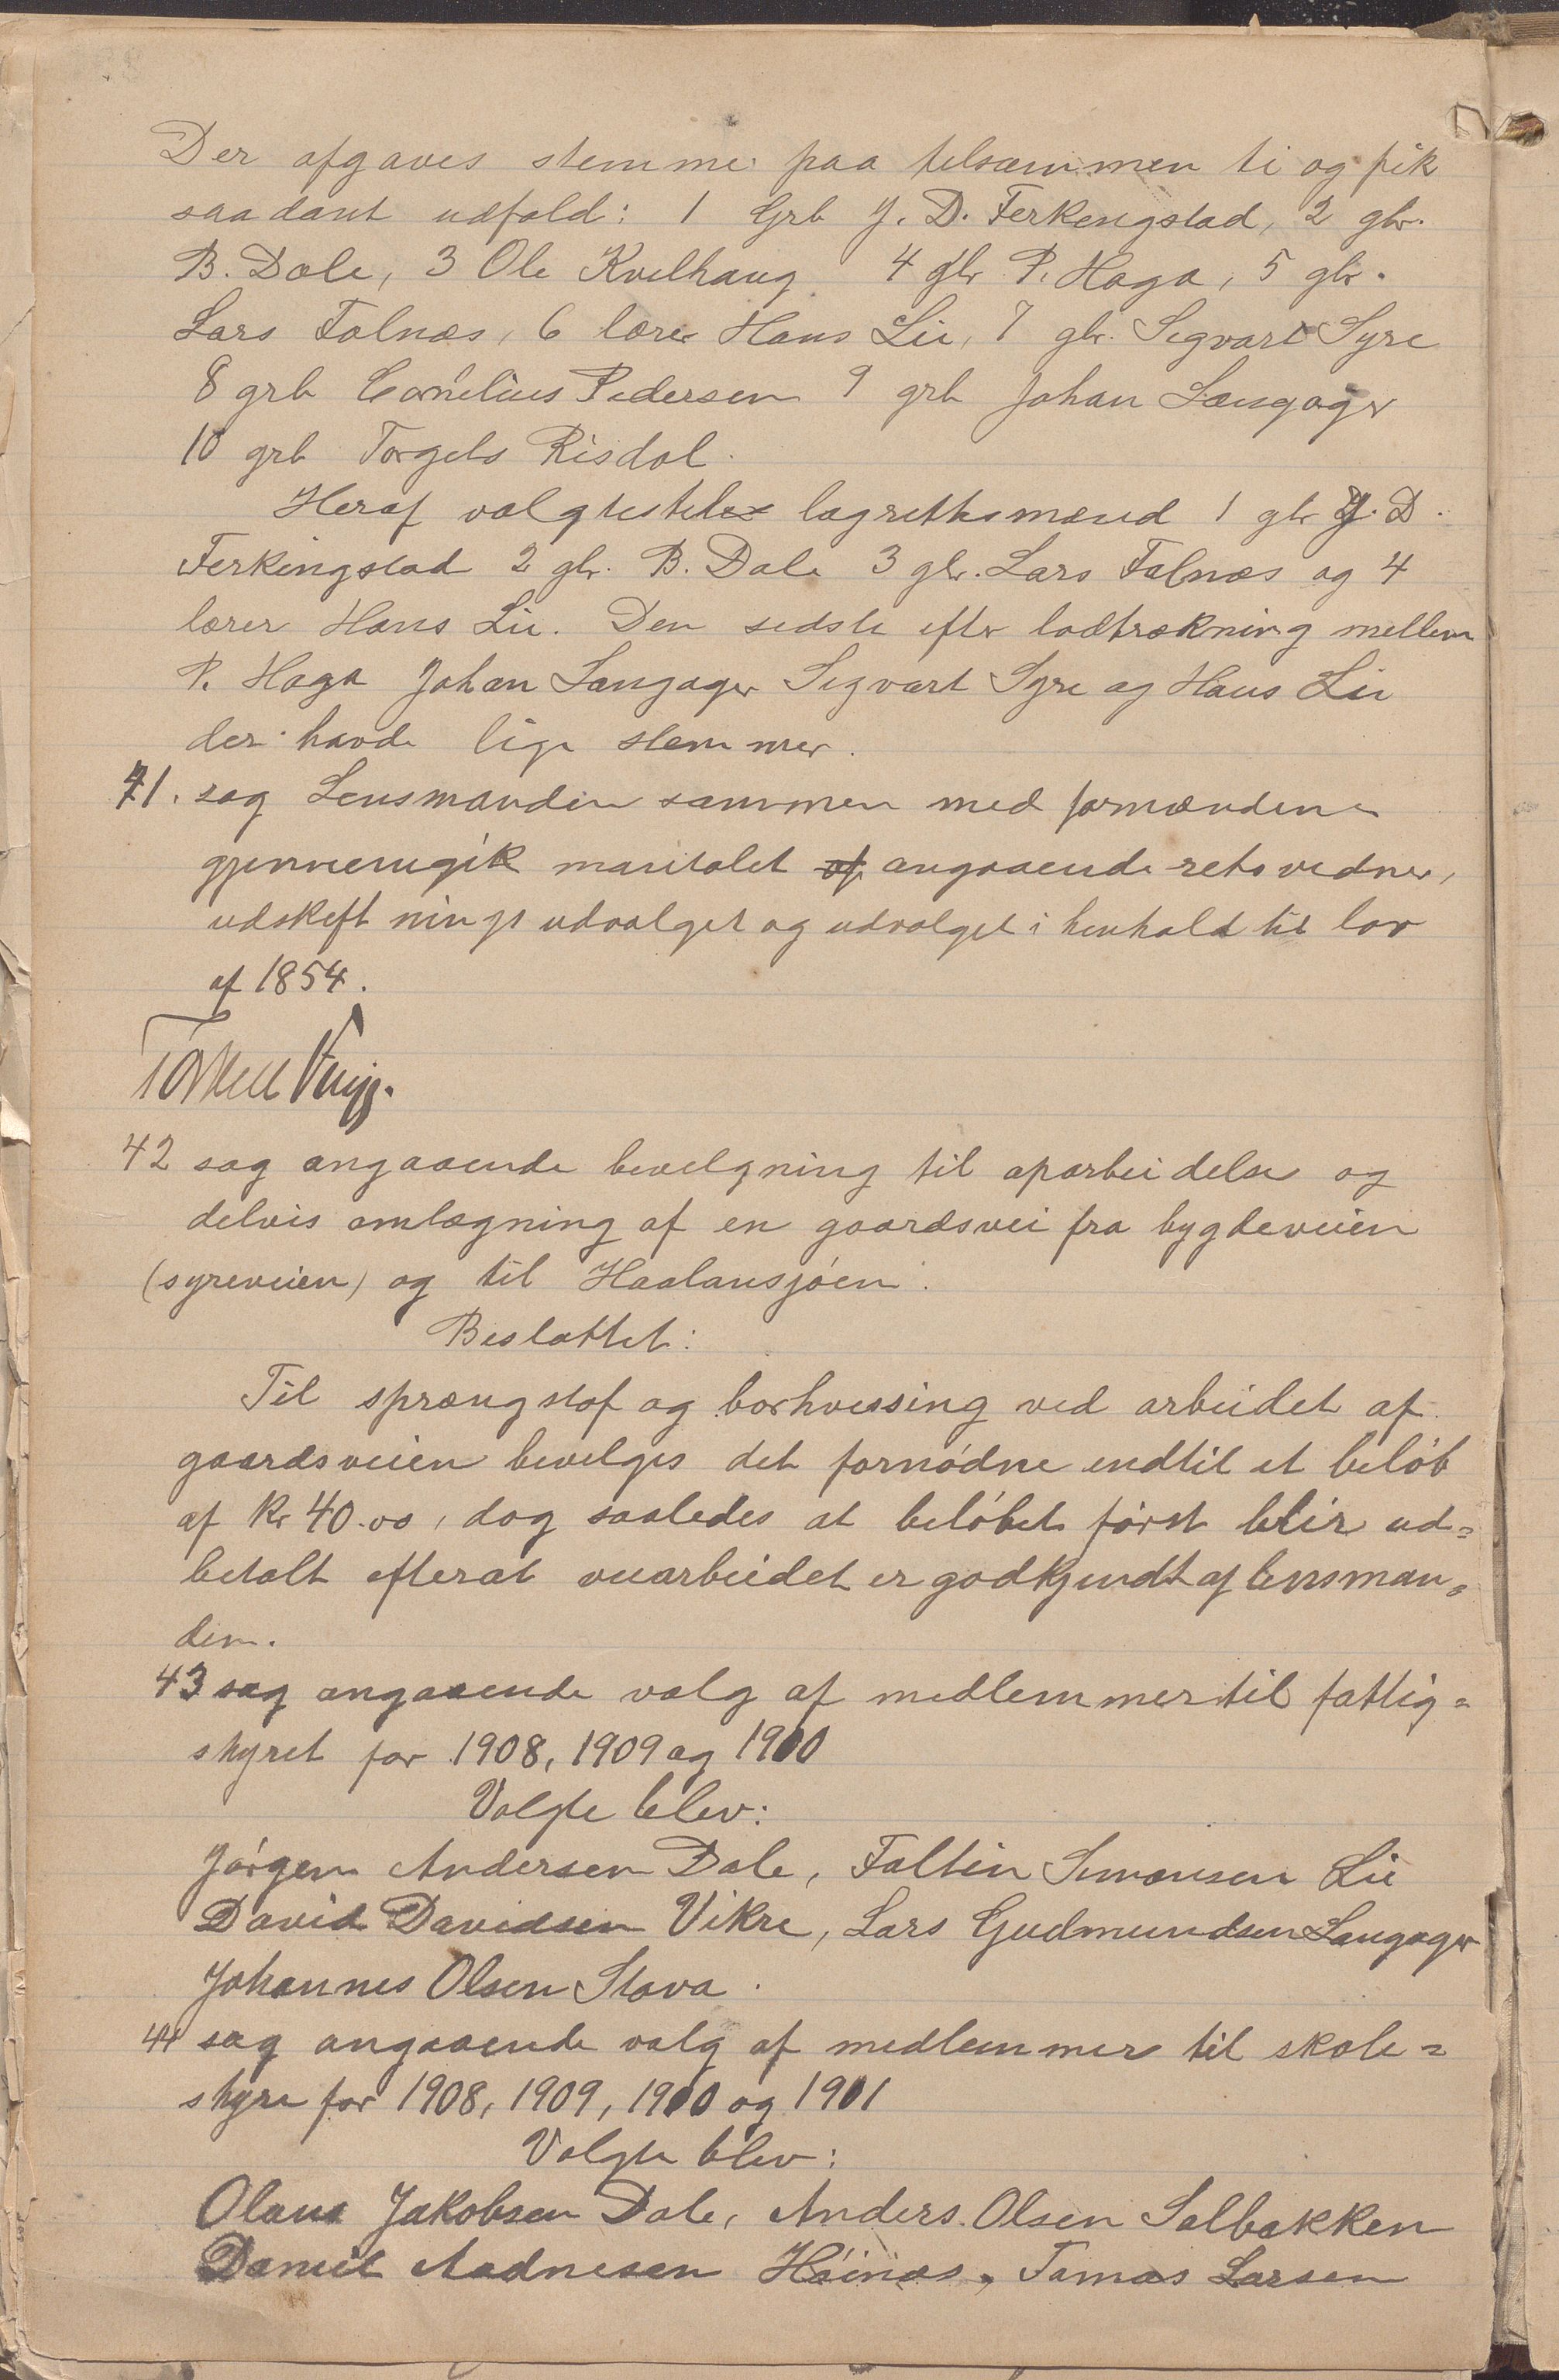 Der afgaves stemme paa tilsammen ti og fik
saadant udfald: 1 Grb J. D. Ferkengstad, 2 gbr.
B. Dale, 3 Ole Kvilhaug 4 gbr P. Haga, 5 gbr.
Lars Falnæs, 6 lærer Hans Lie, 7 gbr. Sigvart Syre
8 grb Cornelius Pedersen 9 grb Johan Langager
10 grb Torgels Risdal.
Heraf valgtes til lagrettesmænd 1 gbr J. D.
Ferkingstad 2 gbr. B. Dale 3 gbr. Lars Falnæs og 4
lærer Hans Lie. Den sidste efter lodtrækning mellem
P. Haga Johan Langager Sigvart Syre og Hans Lie
der havde lige stemmer.
41. sag Lensmanden sammen med formændene
gjennemgik mantalet angaaende retsvidner,
udskiftningsudvalget og udvalget i henhold til lov
af 1854.
42 sag angaaende bevilgning til oparbeidelse og
delvis omlægning af en gaardsvei fra bygdeveien
(syreveien) og til Haalansjøen.
Beslættet:
Til sprængstof og borhvessing ved arbeidet af
gaardsveien bevilges det fornødne indtil et beløb
af Kr 40.00, dog saaledes at beløbet først blir ud=
betalt efterat veiarbeidet er godkjendt af lensman=
den.
43 sag angaaende valg af medlemmer til fattig=
styret for 1908, 1909 og 1910
Valgte blev:
Jørgen Andersen Dale, Faltin Simonsen Lie
David Davidsen Vikre, Lars Gudmundsen Langager
Johannes Olsen Stava.
44 sag angaaende valg af medlemmer til skole=
styre for 1908, 1909, 1910 og 1911
Valgte blev:
Olaus Jakobsen Dale, Anders Olsen Solbakken
Daniel Aadnesen Høinæs, Tomas Larsen